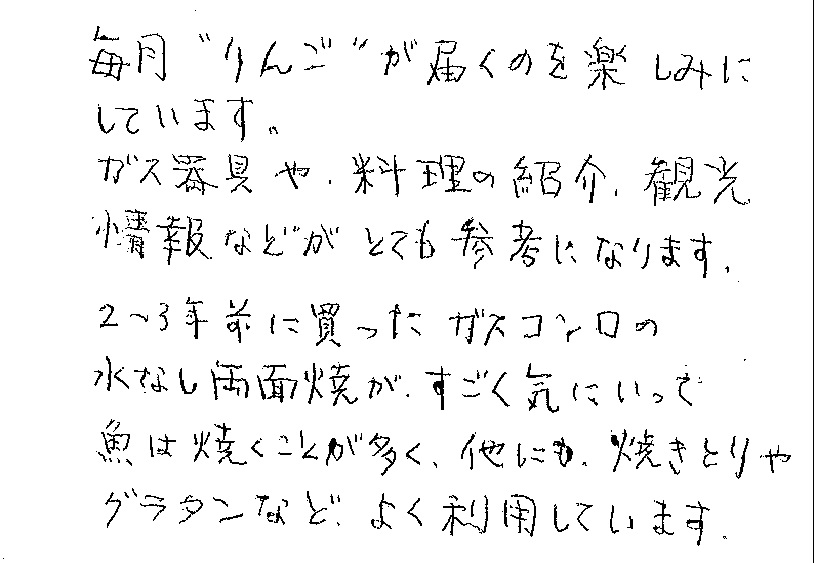 毎月“りんご”が届くのを楽しみに
しています。
ガス器具や、料理の紹介、観光
情報などがとても参考になります。
2～3年前に買ったガスコンロの
水なし両面焼が、すごく気にいって
魚は焼くことが多く、他にも、焼きとりや
グラタンなど、よく利用しています。